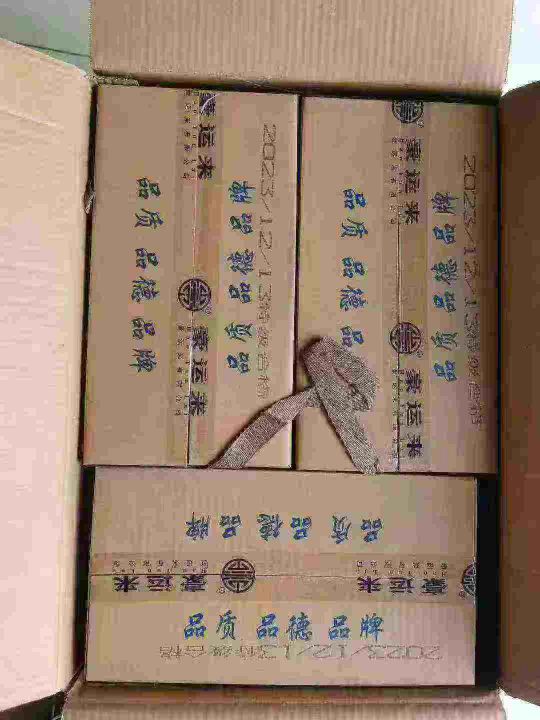 豪运来
豪运来
2023/12/13特级合格
品质 品德 品牌
品质 品德 品牌
豪运来
豪运来
2023/12/13特级合格
品质 品德 品牌
品质 品德 品牌
品质 品德 品牌
豪运来
豪运来
品质 品德 品牌
2023/12/13特级合格